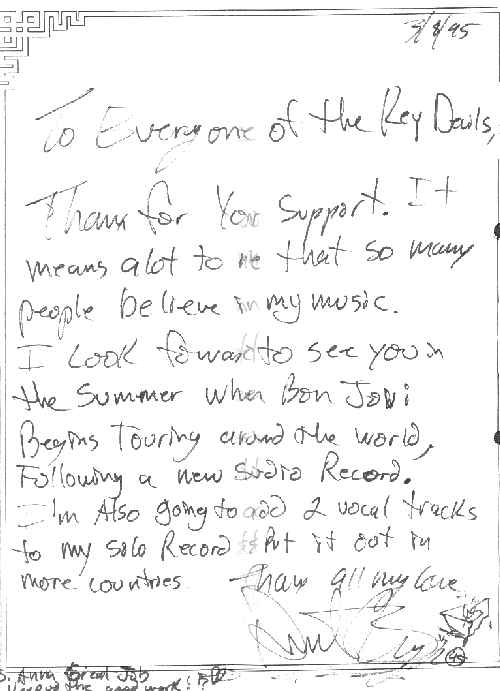 3/8/95
To Everyone of the Key Devils,
Thanx for You Support. It
means alot to me that so many
people believe in my music.
I Look foward to see you in
the Summer when Bon Jovi
Begins Touring around the world,
Following a new Studio Record.
I'm Also going to add 2 vocal tracks
to my Solo Record Put it out in
more countries. Thanx all my love
S. Anna Great Job
the good work!